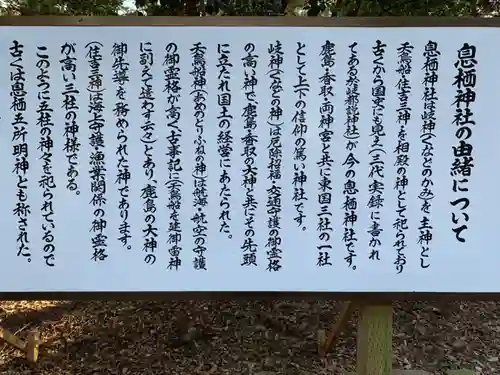 息栖神社の由緒について
息栖神社は岐神（くなどのかみ）を主神とし
天鳥船、住吉三神を相殿の神として祀られており
古くから国史にも見え（三代実録に書かれ
てある於岐都説神社）が今の息栖神社です。
鹿島・香取両神宮と共に東国三社の一社
として上下の信仰の篤い神社です。
岐神（くなどの神）は厄除招福・交通守護の御霊格
の高い神で鹿島・香取の大神と共にその先頭
に立たれ国土の経営にあたられた。
天鳥船（あめのとりふねの神）は航海・航空の守護
の御霊格が高く（古事記に（天鳥船を建御雷神
に副えて遣わす云々）とあり、鹿島の大神の
御先導を務められた神であります。
（住吉三神）は海上守護・漁業関係の御霊格
が高い三社の神様である。
このように五柱の神々を祀られているので
古くは息栖五所明神とも称された。